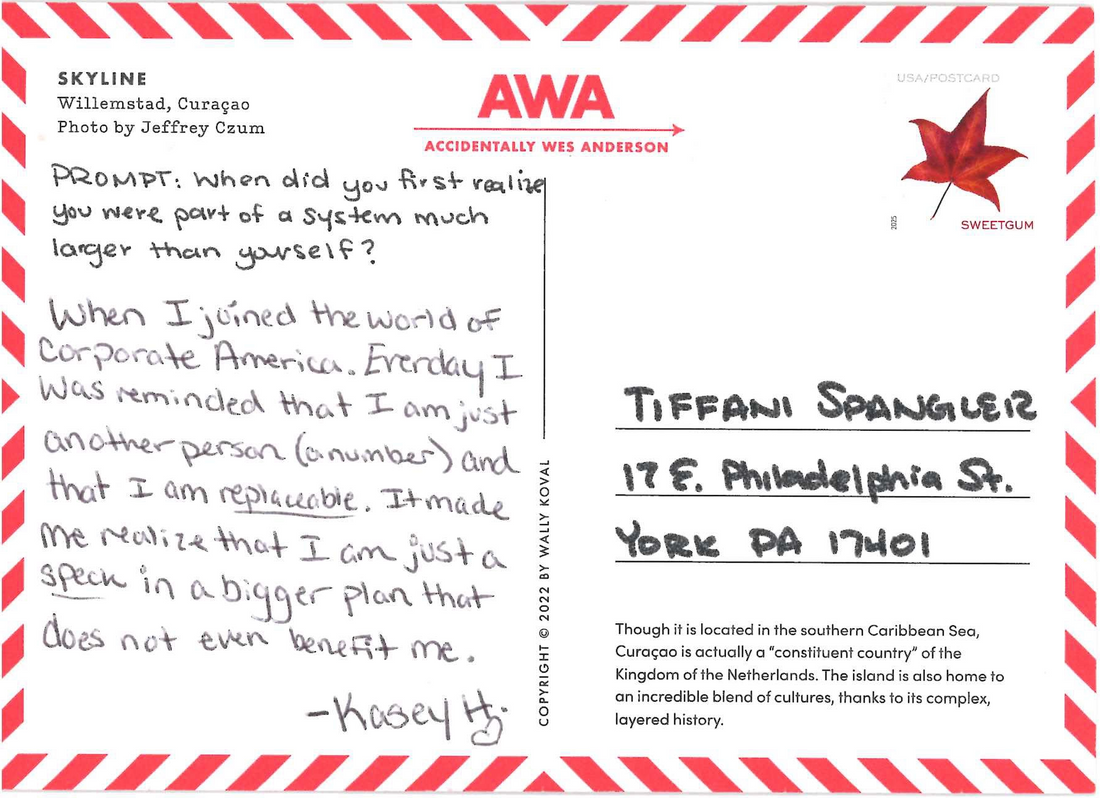 SKYLINE
Willemstad, Curaçao
Photo by Jeffrey Czum
AWA
ACCIDENTALLY WES ANDERSON
USA/POSTCARD
2025
SWEETGUM
PROMPT: When did you first realize
you were part of a system much
larger than yourself?
When I joined the world of
Corporate America. Everday I
was reminded that I am just
another person (a number) and
that I am replaceable. It made
me realize that I am just a
speck in a bigger plan that
does not even benefit me.
-Kasey H.
COPYRIGHT © 2022 BY WALLY KOVAL
TIFFANI SPANGLER
17 E. Philadelphia St.
YORK PA 17401
Though it is located in the southern Caribbean Sea,
Curaçao is actually a “constituent country” of the
Kingdom of the Netherlands. The island is also home to
an incredible blend of cultures, thanks to its complex,
layered history.